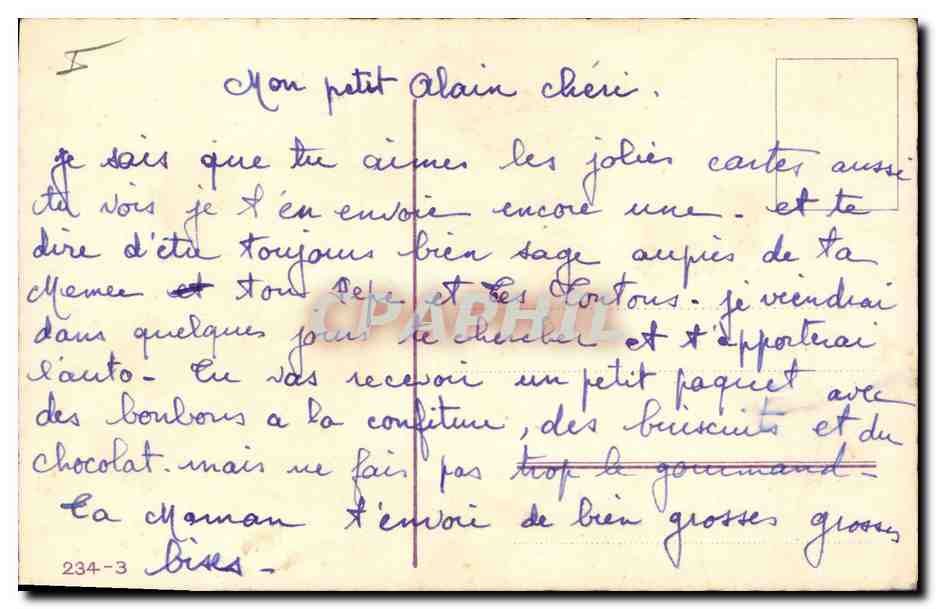 Mon petit Alain chéri.
je sais que tu aimes les jolies cartes aussi
tu vois je t'en envoie encore une - et te
dire d'être toujours bien sage auprès de ta
Memee et ton Pepe et tes Tontons - je viendrai
dans quelques jours te chercher et t'apporterai
l'auto - Tu vas recevoir un petit paquet avec
des bonbons a la confiture, des buiscuits et du
chocolat - mais ne fais pas trop le gourmand -
Ta Maman t'envoie de bien grosses grosses
bises -
234-3
CPAPHIL